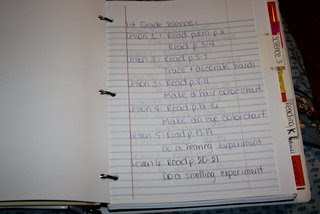 1st Grade Science:
Lesson 1: Read poem p.2
Read p. 3-4
Lesson 2: Read p. 5-7
Trace & decorate hands
Lesson 3: Read p. 8-11
Make a hair color chart
Lesson 4: Read p. 12-16
Make an eye color chart
Lesson 5: Read p. 17-19
Do a hearing experiment
Lesson 6: Read p. 20-21
Do a smelling experiment
Science 3
Reading K